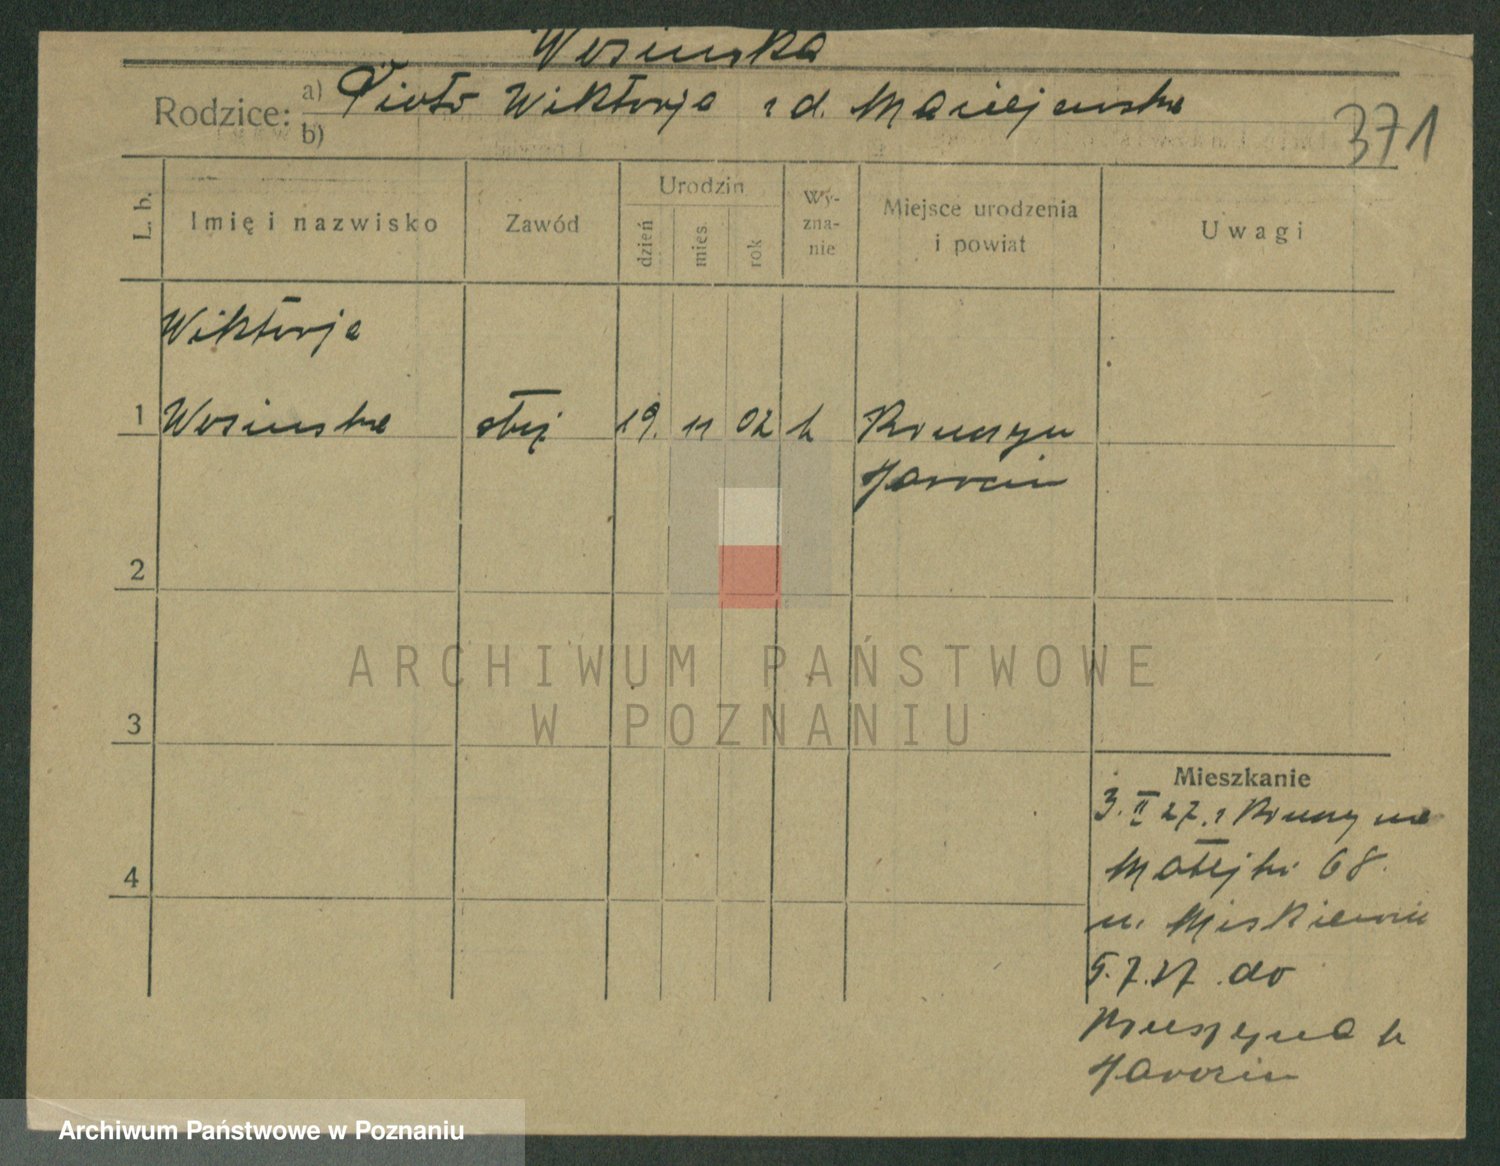 Wosinska
Rodzice: a) Piotr Wiktorja z d. Maciejewska
b)
371
L. b.
Imię i nazwisko
Zawód
Urodzin
dzień
mies.
rok
Wy-
zna-
nie
Miejsce urodzenia
i powiat
Uwagi
Wiktorja
1 Wosinska służ 19. 11 02 k
Jarocin
2
3
4
ARCHIWUM PAŃSTWOWE
W POZNANIU
Mieszkanie
3. II 27. z
Matejki 68.
u.
5.7.27. do
Jarocin
Archiwum Państwowe w Poznaniu